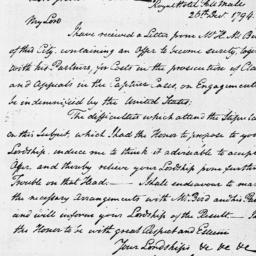 Royal Hotel Pall Mall
26th Decr 1794.
My Lord
I have received a Letter from Mr H. M. Bi
of this City, containing an Offer to become surety, toget
with his Partners, for Costs in the prosecution of Cla
and Appeals in the Capture Cases, on Engagement
be indemnified by the United States.
The difficulties which attend the Stipula
on this Subject, which I had the Honor to propose to yo
Lordship, induce me to think it adviseable to accept
Offer, and thereby relieve your Lordship from further
Trouble on that Head. I shall endeavour to mak
the necessary Arrangements with Mr Bird and his Par
and will inform your Lordship of the Result. I h
the Honor to be with great Respect and Esteem
Your Lordship's &c &c &c